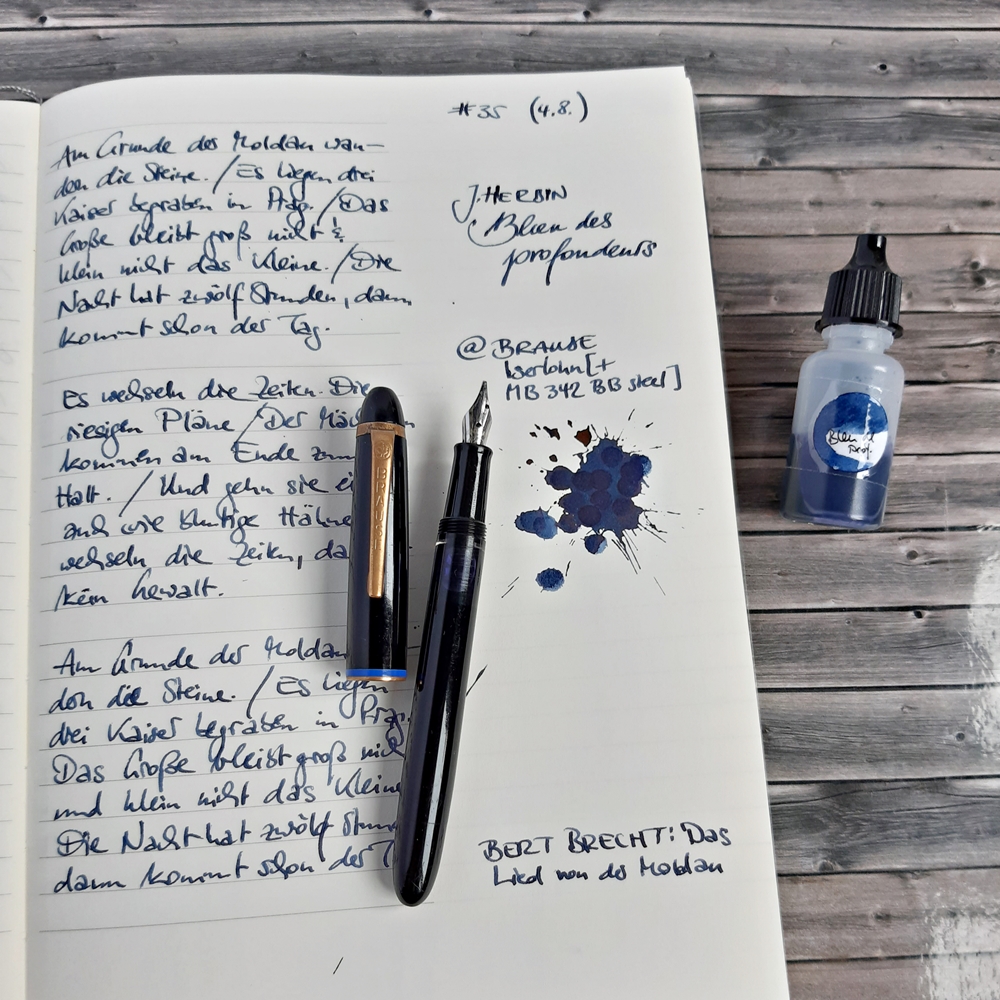 #35 (4.8.)
Am Grunde der Moldau wan-
dern die Steine. / Es liegen drei
Kaiser begraben in Prag. / Das
Große bleibt groß nicht &
klein nicht das Kleine. / Die
Nacht hat zwölf Stunden, dann
kommt schon der Tag.
Es wechseln die Zeiten. Die
riesigen Pläne / Der Mäch
kommen am Ende zum
Halt. / Und gehn sie ei
auch wie blutige Hähne
wechseln die Zeiten, da
kein Gewalt.
Am Grunde der Moldau
dern die Steine. / Es liegen
drei Kaiser begraben in Prag.
Das Große bleibt groß nich
und klein nicht das Kleine
Die Nacht hat zwölf Stun
dann kommt schon der T
J. HERBIN
Bleu des
profondeurs
@ BRAUSE
Iserlohn [+
MB 342 BB steel]
Bleu d
Prof.
BERT BRECHT: Das
Lied von der Moldau